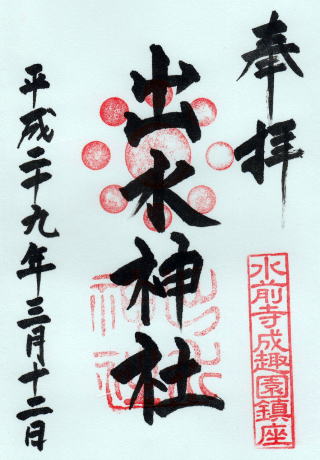 奉拝
水前寺成趣園鎮座
出水神社
出水神社
平成二十九年三月十二日